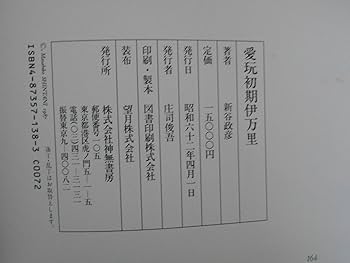 愛玩初期伊万里
著者 新谷政彦
定価 一五〇〇〇円
発行日 昭和六十二年四月一日
発行者 庄司俊吾
印刷・製本 図書印刷株式会社
装布 望月株式会社
発行所 株式会社神無書房
郵便番号一〇五
東京都港区虎ノ門五—一—五
電話(〇三)四三一—三一三二
振替東京九—四〇〇八二
落丁・乱丁はお取替えします。
ISBN4-87357-138-3 C0072
164